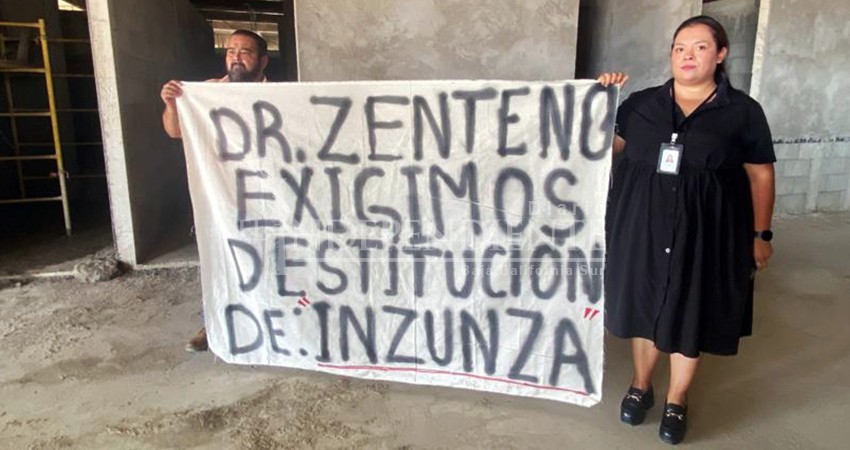 DR. ZENTENO
EXIGIMOS
DESTITUCIÓN
DE: "INZUNZA"
INDEPENDIENTE
Baja California Sur